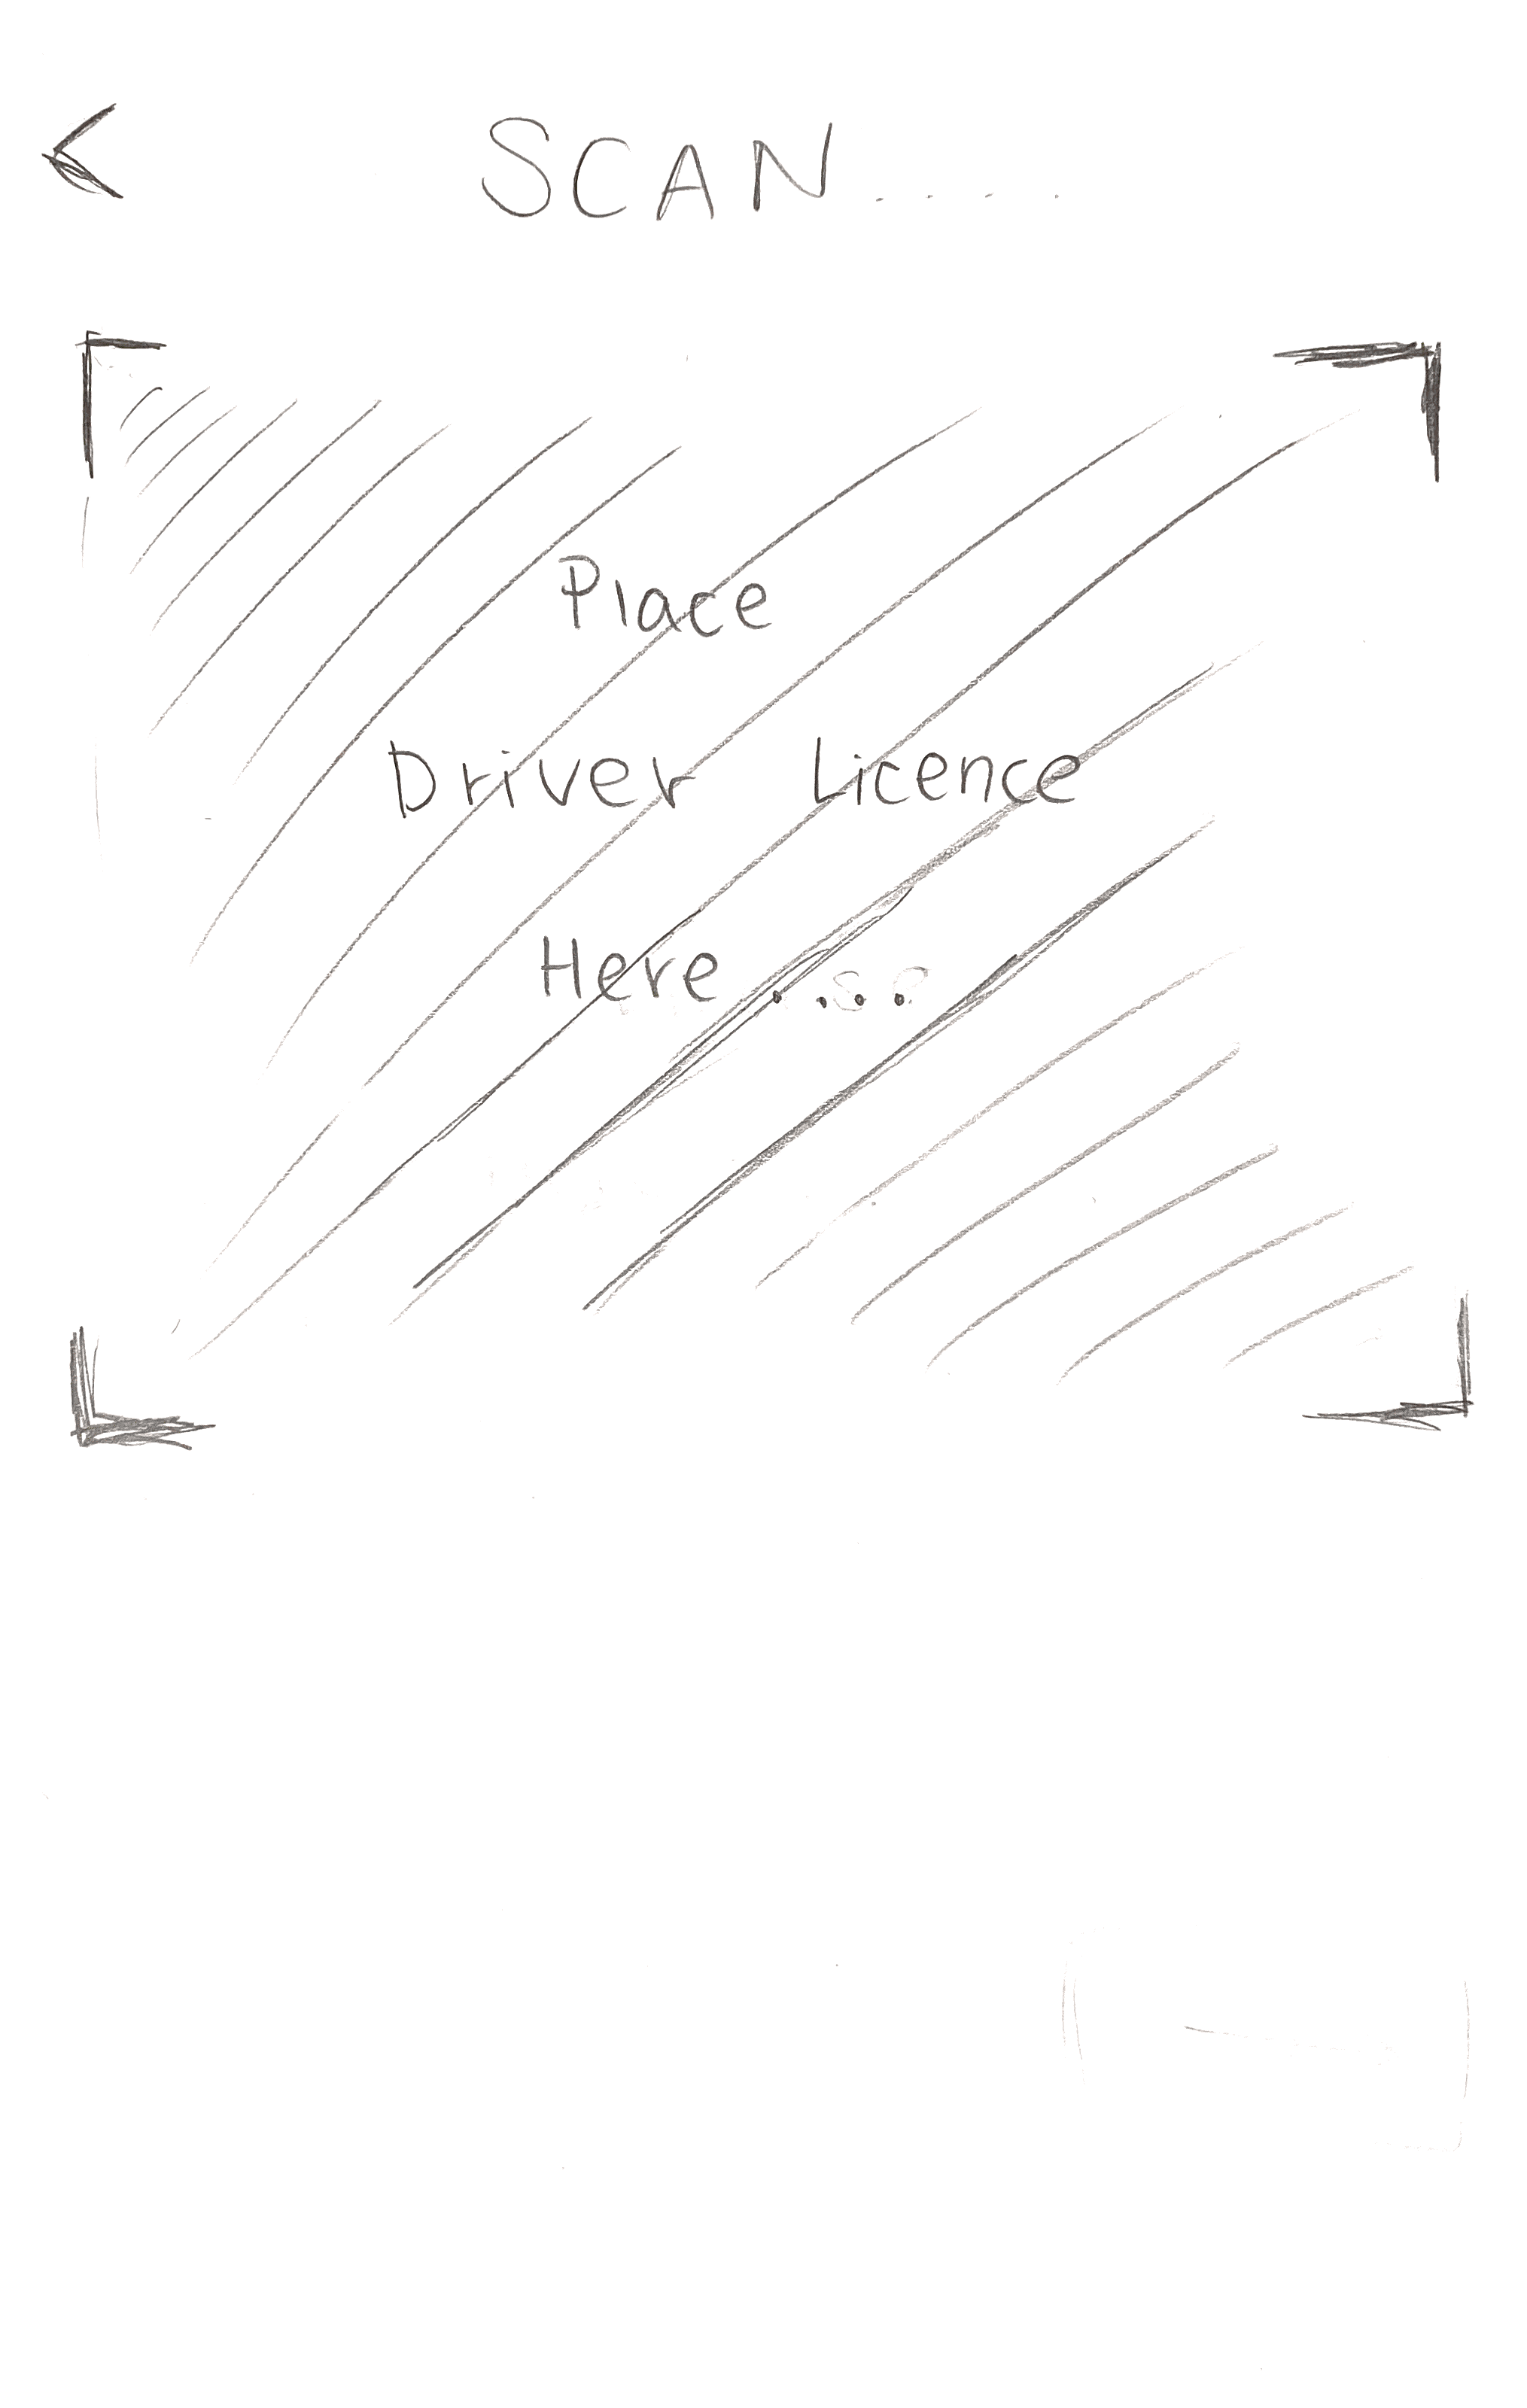 SCAN.....
Place
Driver Licence
Here ....